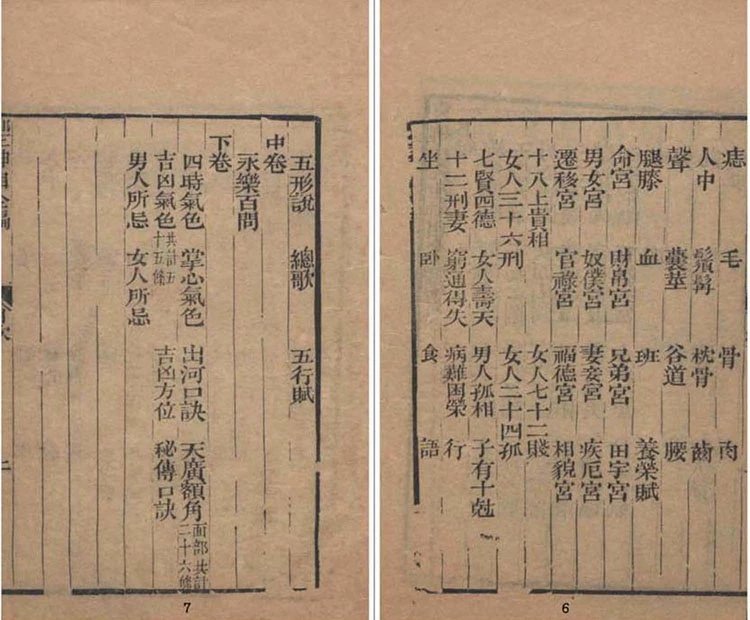 痣 毛 骨 肉
人中 鬚髯 枕骨 齒
聲 囊莖 谷道 腰
腿膝 血 班 養榮賦
命宮 財帛宮 兄弟宮 田宇宮
男女宮 奴僕宮 妻妾宮 疾厄宮
遷移宮 官祿宮 福德宮 相貌宮
十八上貴相 女人七十二賤
女人三十六刑 女人二十四孤
七賢四德 女人壽夭 男人孤相 子有十尅
十二刑妻 窮通得失 病難困榮 行
坐 臥 食 語
6
五形說 總歌 五行賦
中卷
永樂百問
下卷
四時氣色 掌心氣色 出河口訣 天廣額角 面部共計二十六條
吉凶氣色 共計五十五條 吉凶方位 秘傳口訣
男人所忌 女人所忌
7